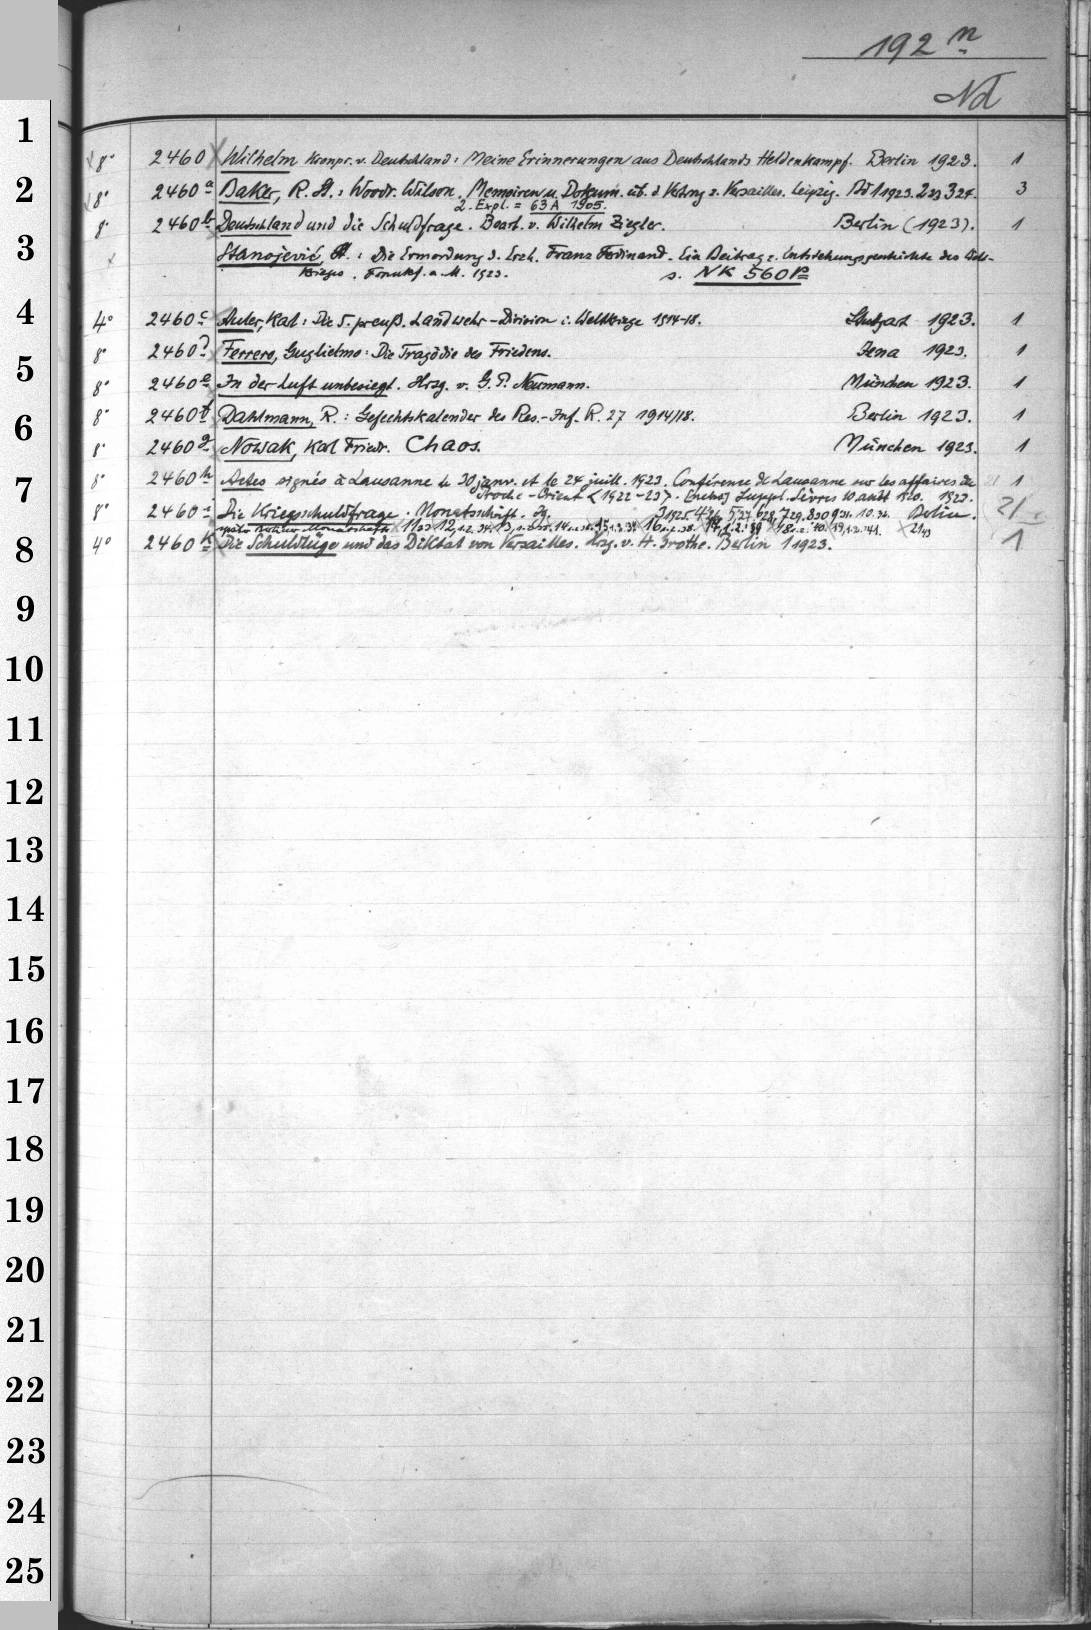 192 n
Nd
1
8° 2460 Wilhelm Kronpr. v. Deutschland: Meine Erinnerungen aus Deutschlands Heldenkampf. Berlin 1923. 1
2
8° 2460 a Baker, R. St.: Woodr. Wilson. Memoiren u. Dokum. üb. d. Vertrag z. Versailles. Leipzig. Bd 1 1923. 2 23 3 24. 3
2. Expl. = 63 A 1905.
8° 2460 b Deutschland und die Schuldfrage. Bearb. v. Wilhelm Ziegler. Berlin (1923). 1
3
Stanojević, St.: Die Ermordung d. Erzh. Franz Ferdinand. Ein Beitrag z. Entstehungsgeschichte des Welt-
krieges. Frankf. a. M. 1923. s. NK 560 p
4
4° 2460 c Auler, Karl: Die 5. preuß. Landwehr-Division i. Weltkriege 1914-18. Stuttgart 1923. 1
8° 2460 d Ferrero, Guglielmo: Die Tragödie des Friedens. Jena 1923. 1
5
8° 2460 e In der Luft unbesiegt. Hrsg. v. G. P. Neumann. München 1923. 1
8° 2460 f Dahlmann, R.: Gefechtskalender des Res.-Inf. R. 27 1914/18. Berlin 1923. 1
6
8° 2460 g Nowak, Karl Friedr. Chaos. München 1923. 1
7
8° 2460 h Actes signés à Lausanne le 30 janv. et le 24 juill. 1923. Conférence de Lausanne sur les affaires du 1
Proche-Orient (1922-23). Suppl. Sèvres 10 août 1920. 1923.
8° 2460 i Die Kriegsschuldfrage. Monatsschrift. Jg. 3 1925 4 26 5 27 6 28 7 29, 8 30 9 31. 10 32. Berlin. 21
später Berliner Monatshefte 11 33 12
8
4° 2460 k Die Schuldlüge und das Diktat von Versailles. Hrsg. v. H. Grothe. Berlin 1 1923. 1
9
10
11
12
13
14
15
16
17
18
19
20
21
22
23
24
25